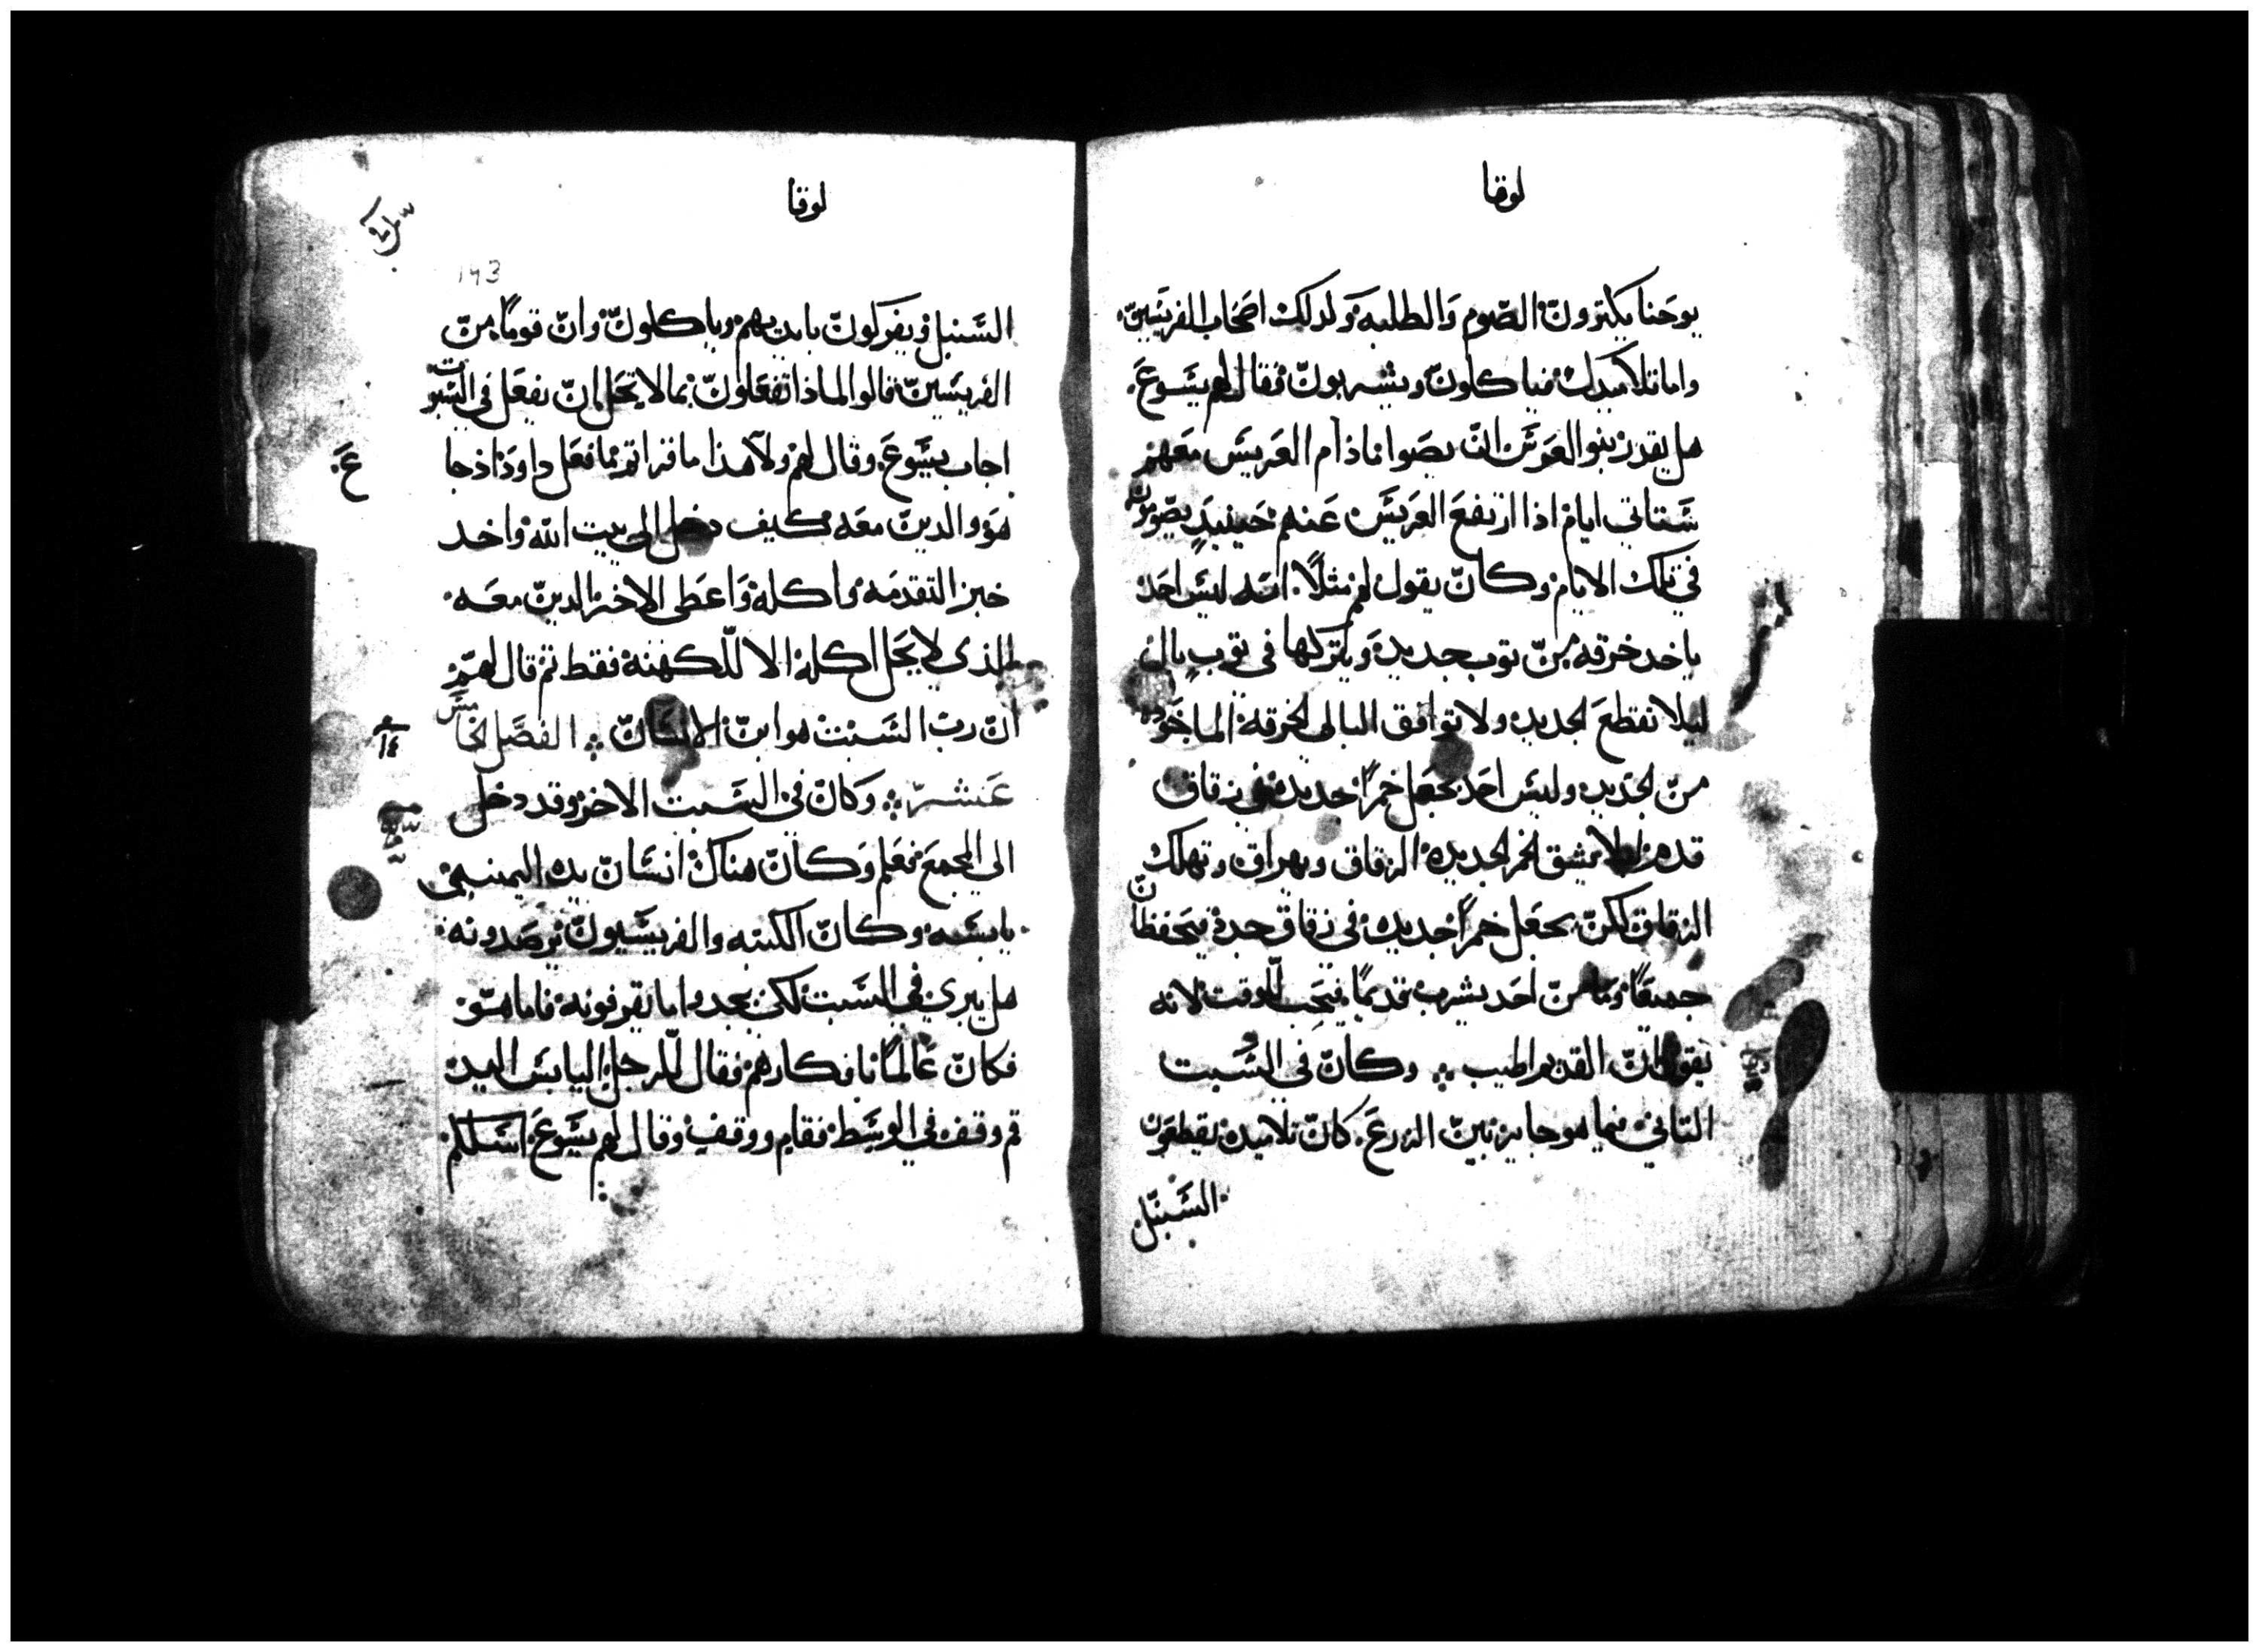 لوقا
يوحنا يكترون الصوم والطلبه ولدلك اصحاب الفريسين
واما تلاميدك فياكلون ويشربون فقال لهم يسوع
هل يقدر بنوا العرس ان يصوا مادام العريس معهم
ستاتي ايام اذا ارتفع العريس عنهم حينيد يصومون
في تلك الايام وكان يقول لهم مثلاً انه ليس احد
ياخد خرقه من توب جديد ويتركها في توب بال
ليلا تقطع الجديد ولا توافق البالي الخرقه الماخوده
من الجديد وليس احد يجعل خمراً جديده في زقاق
قدم ليلا تشق الخمر الجديده الزقاق وتهراق وتهلك
الزقاق لكن يجعل خمراً جديده في زقاق جدد فيتحفظان
جميعاً وما من احد يشرب قديماً فيحب للوقت لانه
يقول ان القديم اطيب وكان في السبت
التاني فيما هو جايز بين الزرع كان تلاميده يقطعون
السنبل
لوقا
143
السنبل ويفركون بايديهم وياكلون وان قوماً من
الفريسين قالوا لماذا تفعلون بما لا يحل ان يفعل في السبوت
اجاب يسوع وقال لهم ولا هذا ما قراتم بما فعل داود اذ جا
هو والدين معه كيف دخل الى بيت الله واخد
خبز التقدمه واكله واعطى الاخر الدين معه
الذي لا يحل اكله الا للكهنه فقط تم قال لهم
ان رب السبت هو ابن الانسان الفصل الخامس
عشر وكان في السبت الاخر وقد دخل
الي المجمع فعلم وكان هناك انسان يده اليمنى
يابسه وكان الكتبه والفريسيون يرصدونه
هل يبري في السبت لكن يجدوا ما يقرفونه فاما هو
فكان عالماً بافكارهم فقال للرجل اليابس اليد
قم وقف في الوسط فقام ووقف وقال لهم يسوع اسلكم